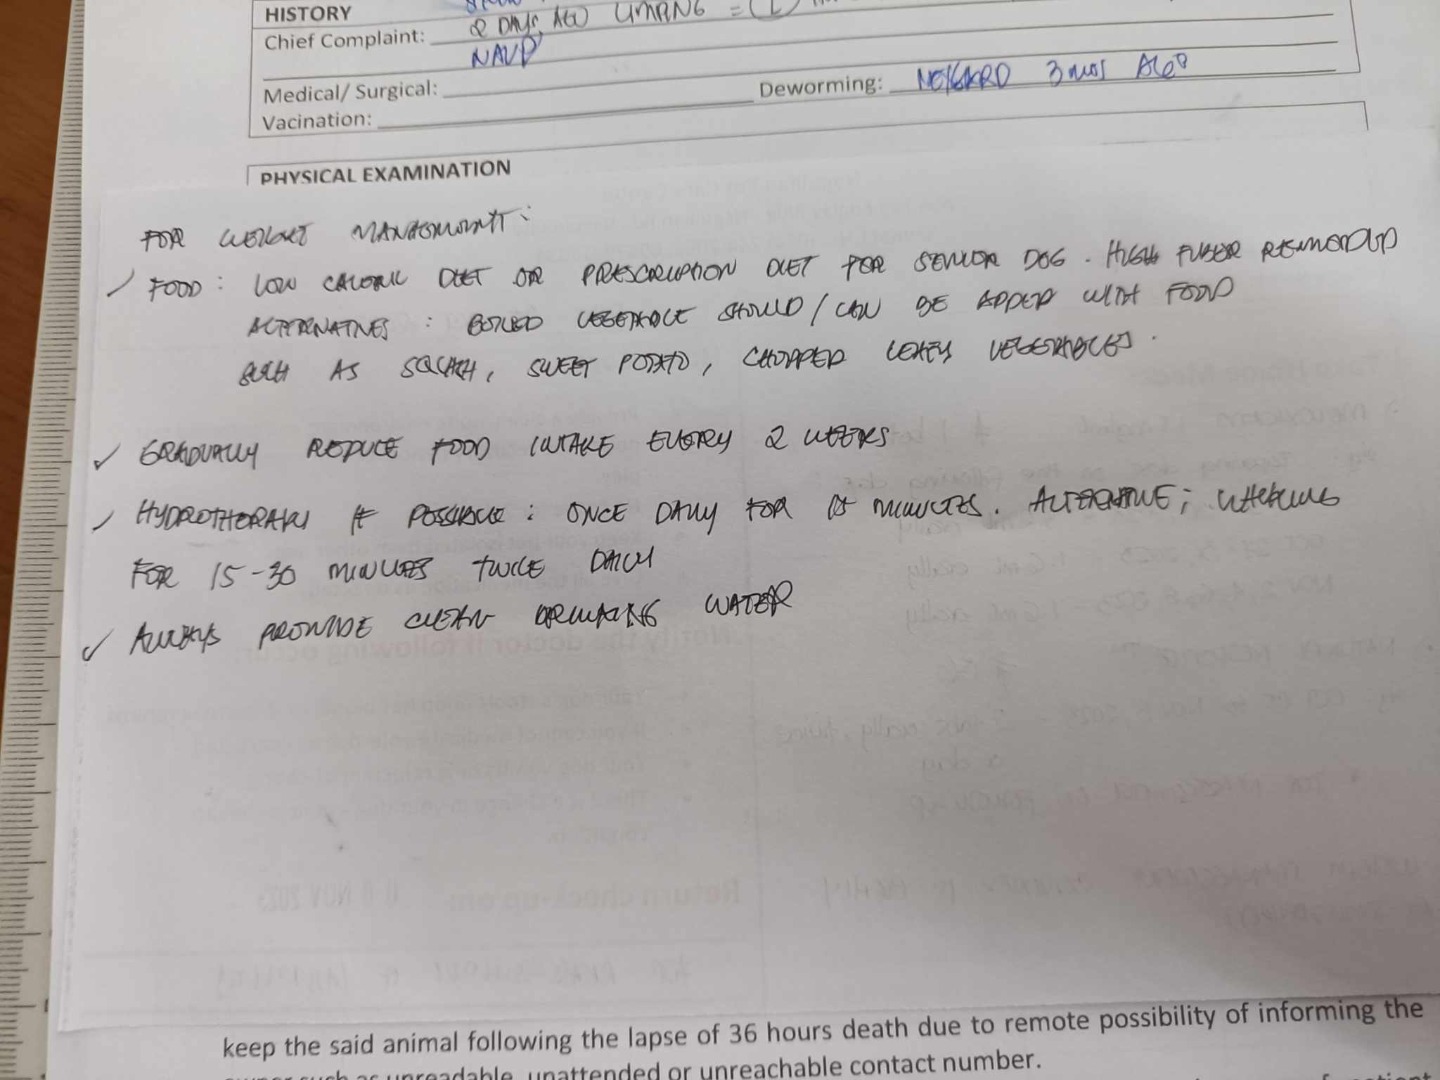 HISTORY
Chief Complaint: 2 DAYS AGO LIMPING = (L)
NAVD
Medical/ Surgical: Deworming: NEXGARD 3 MOS AGO
Vacination:
PHYSICAL EXAMINATION
FOR WEIGHT MANAGEMENT:
✓ FOOD : LOW CALORIC DIET OR PRESCRIPTION DIET FOR SENIOR DOG. HIGH FIBER RECOMMENDED
ALTERNATIVES : BOILED VEGETABLE SHOULD / CAN BE ADDED WITH FOOD
SUCH AS SQUASH, SWEET POTATO, CHOPPED LEAFY VEGETABLES.
✓ GRADUALLY REDUCE FOOD INTAKE EVERY 2 WEEKS
✓ HYDROTHERAPY IF POSSIBLE : ONCE DAILY FOR MINUTES. ALTERNATIVE ; WALKING
FOR 15-30 MINUTES TWICE DAILY
✓ ALWAYS PROVIDE CLEAN DRINKING WATER
keep the said animal following the lapse of 36 hours death due to remote possibility of informing the
unreadable, unattended or unreachable contact number.